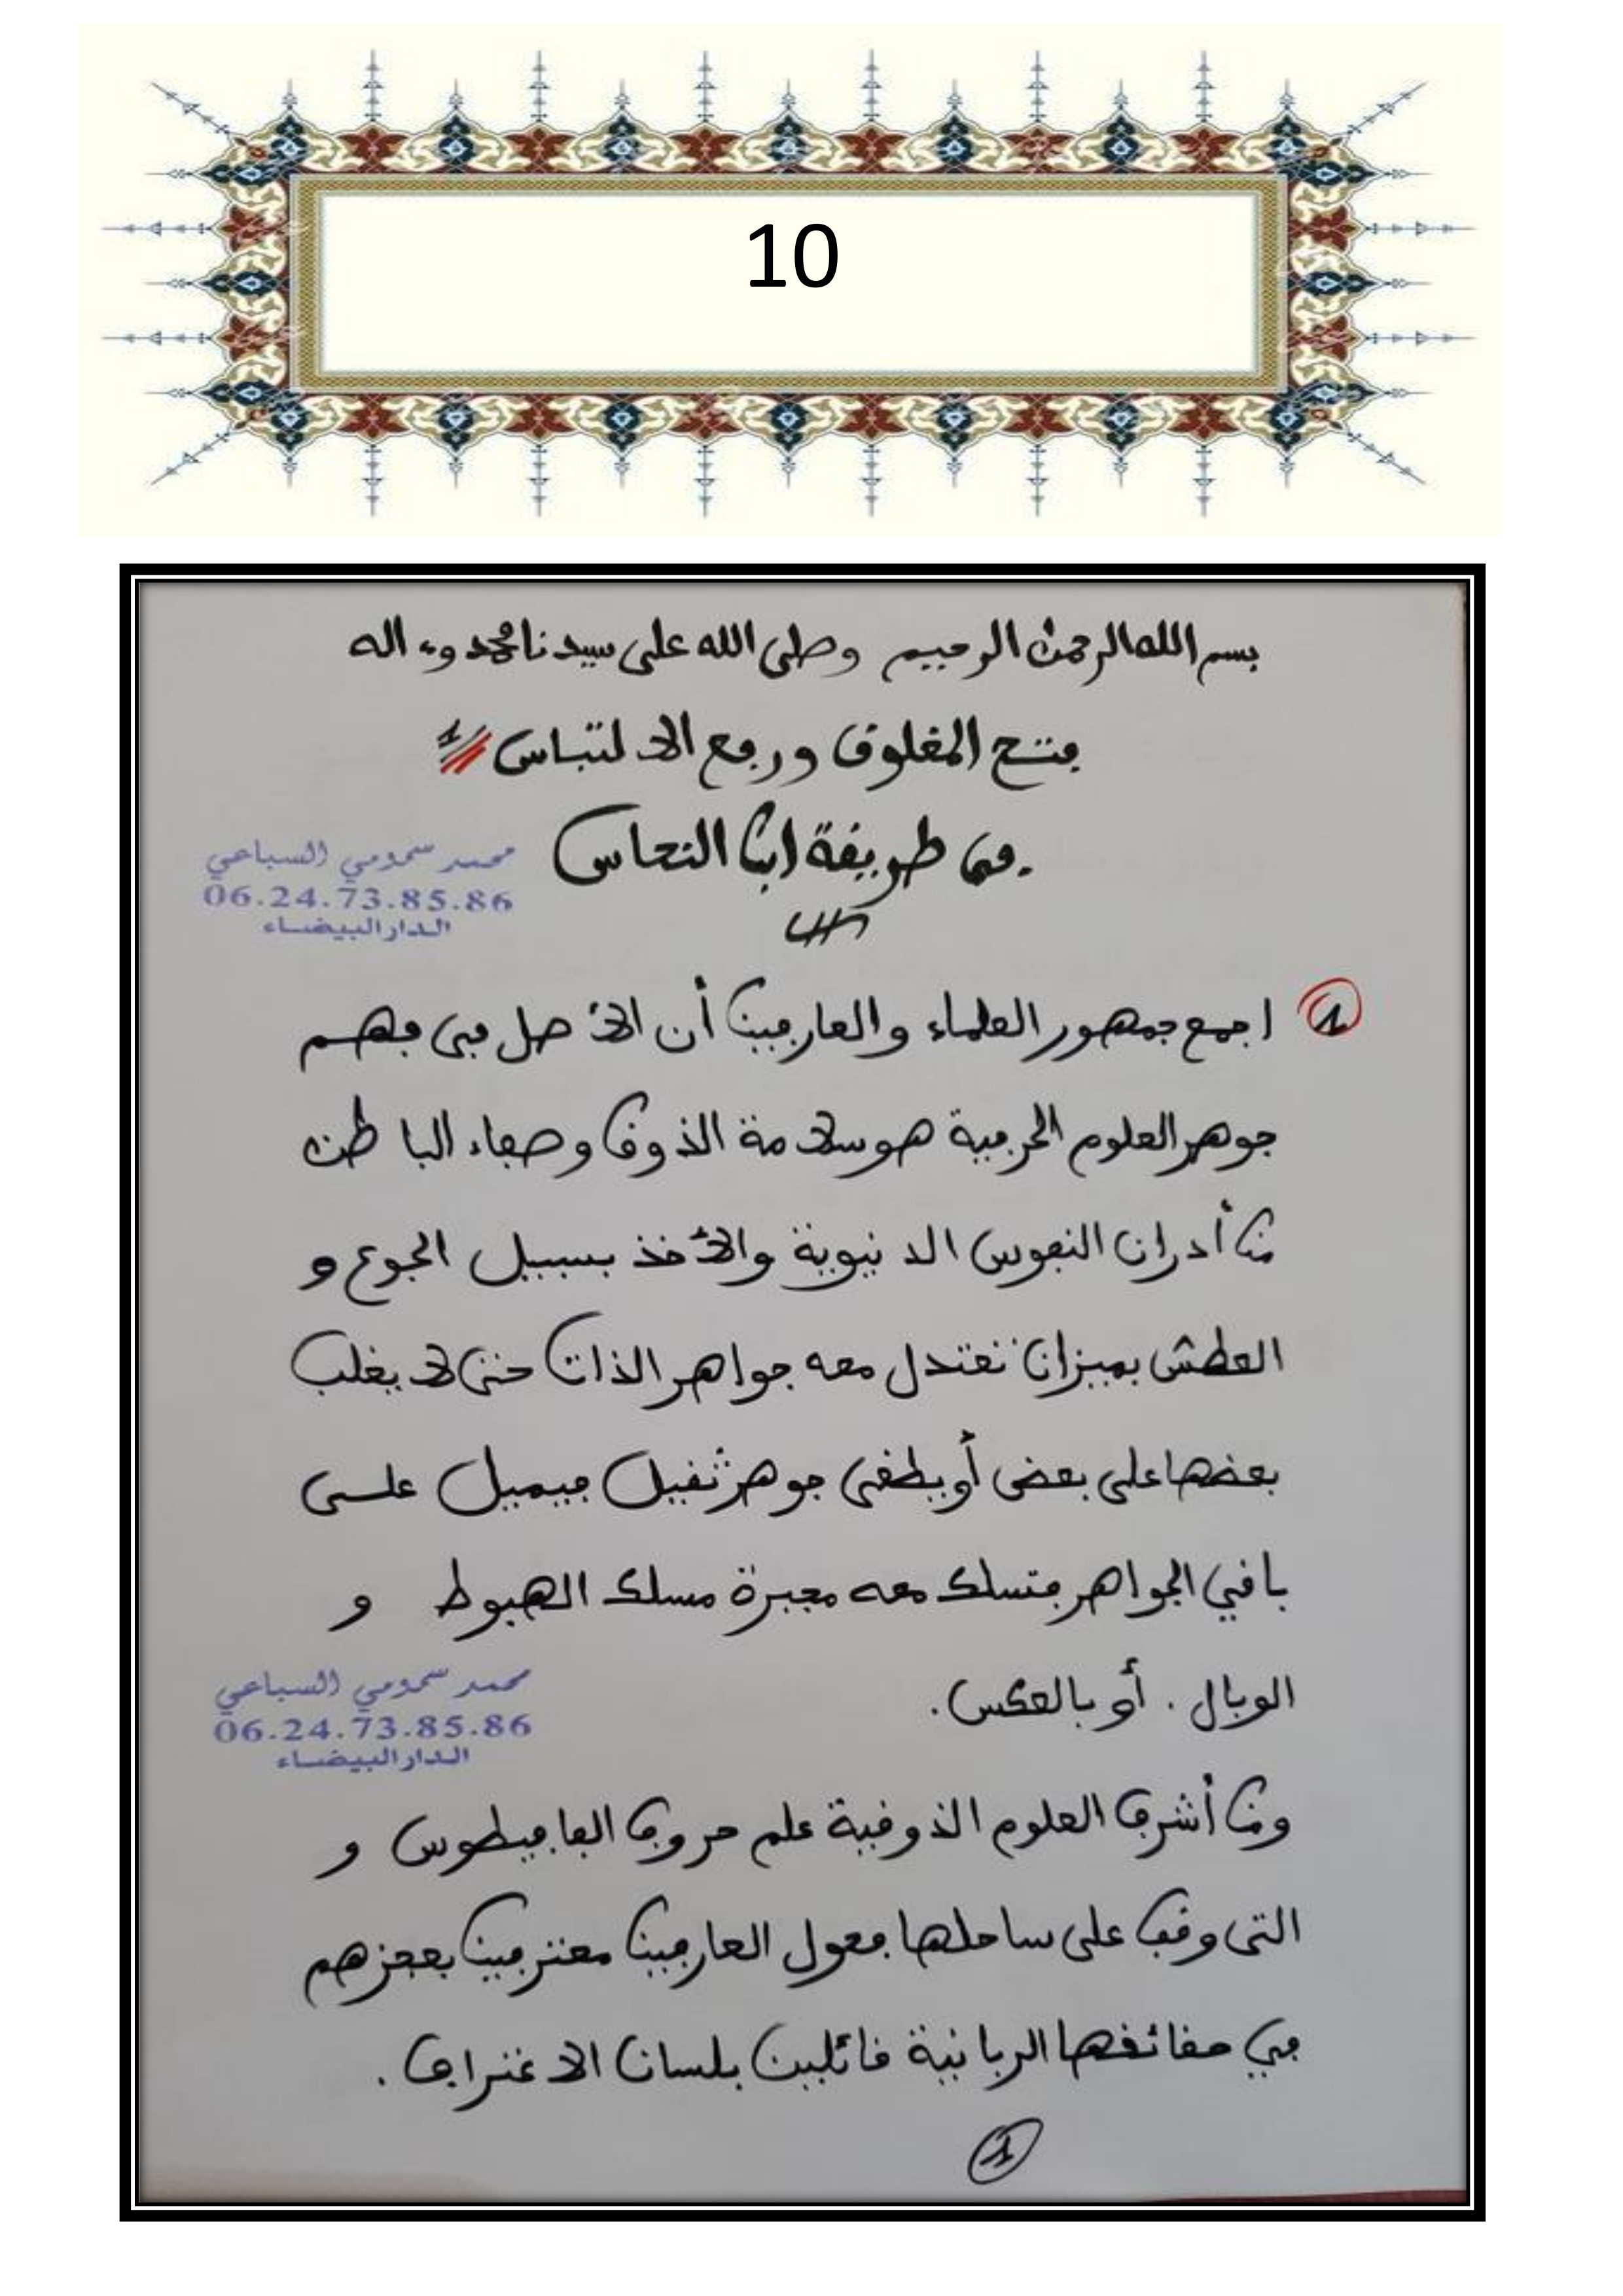 10
بسم الله الرحمن الرحيم وصلى الله على سيدنا محمد وءاله
فتح المغلوق ورفع الالتباس 1
في طريقة ابن النحاس
محمد سمومي السباعي
06.24.73.85.86
الدار البيضاء
1 اجمع جمهور العلماء والعارفين أن الأصل في فهم
جوهر العلوم الحرفية هو سلامة الذوق وصفاء الباطن
من أدران النفوس الدنيوية والأخذ بسبيل الجوع و
العطش بميزان تعتدل معه جواهر الذات حتى لا يغلب
بعضها على بعض أو يطغى جوهر ثقيل فيميل على
باقي الجواهر فتسلك معه مجبرة مسلك الهبوط و
الوبال . أو بالعكس .
محمد سمومي السباعي
06.24.73.85.86
الدار البيضاء
ومن أشرف العلوم الذوقية علم حروف الفافيطوس و
التي وقف على ساحلها فحول العارفين معترفين بعجزهم
في حقائقها الربانية قائلين بلسان الاعتراف .
1